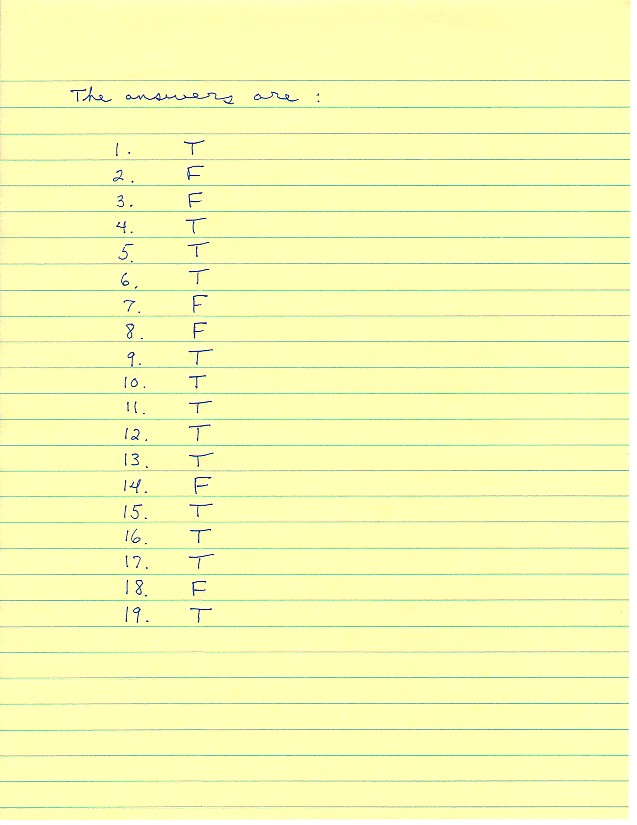 The answers are :
1. T
2. F
3. F
4. T
5. T
6. T
7. F
8. F
9. T
10. T
11. T
12. T
13. T
14. F
15. T
16. T
17. T
18. F
19. T